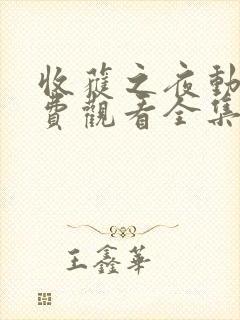 收蓷之夜動
費觀看全集
王鑫華